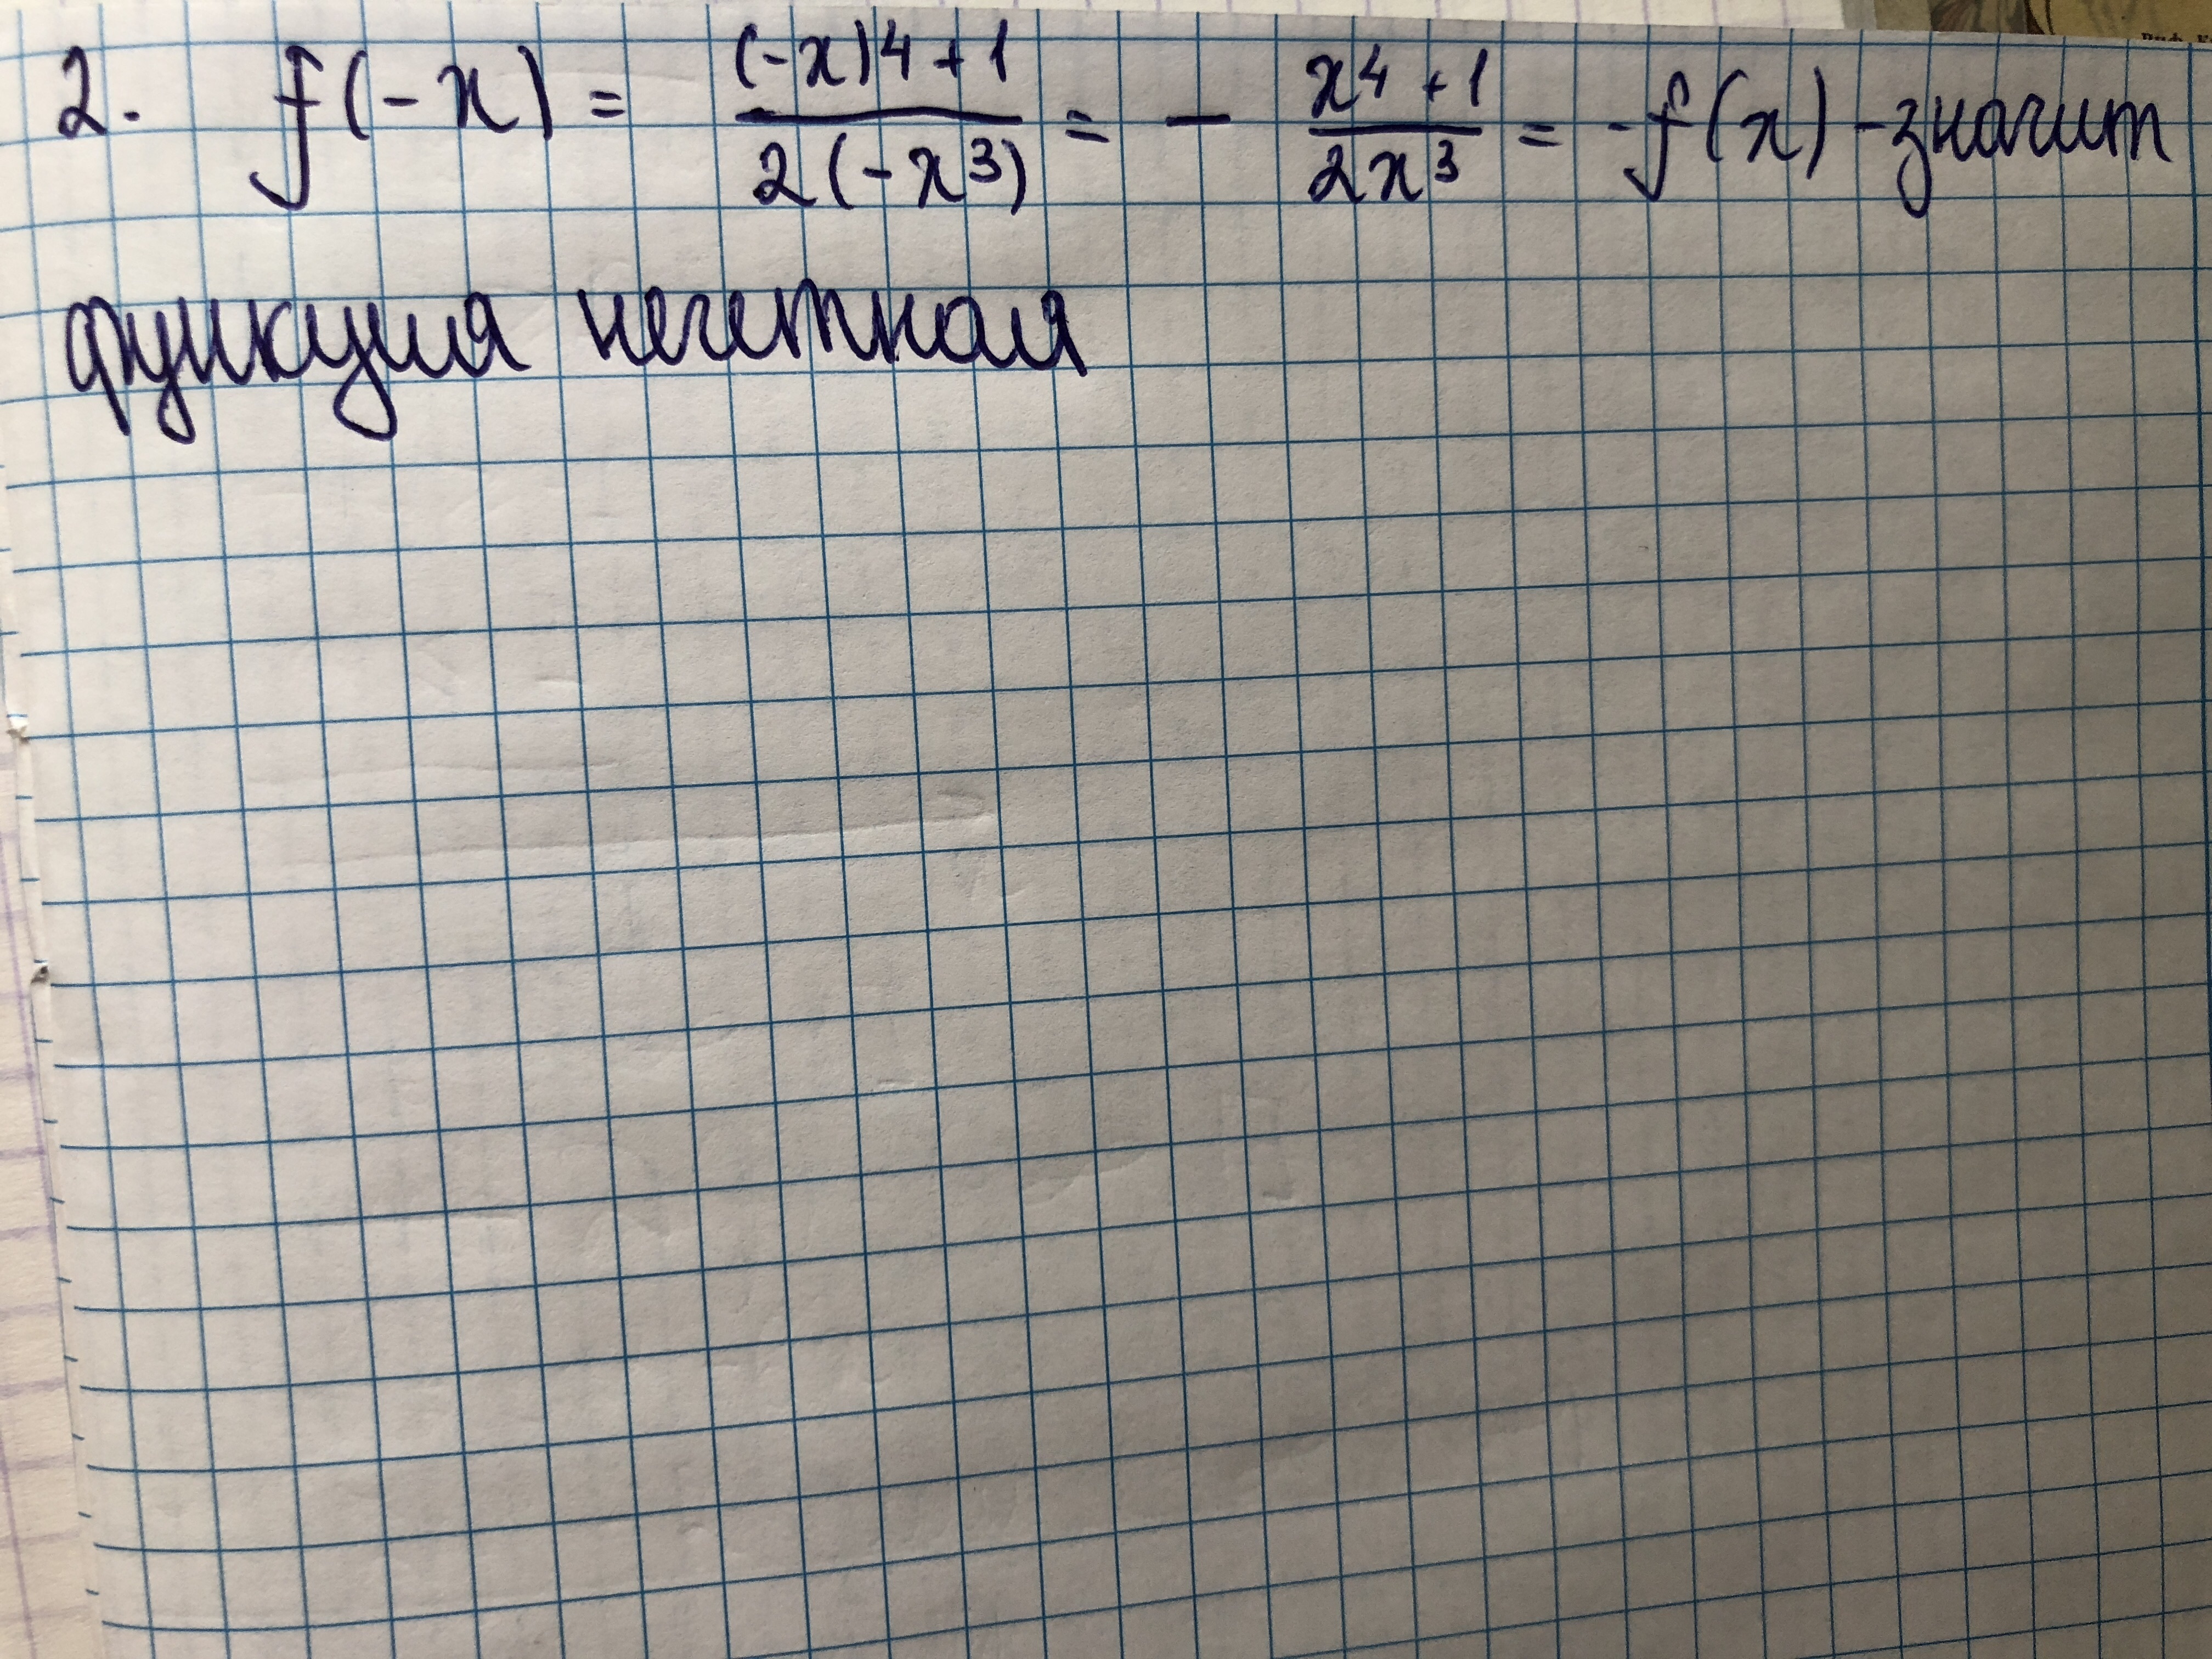 2. f(-x) = \frac{(-x)^4+1}{2(-x^3)} = - \frac{x^4+1}{2x^3} = -f(x) - значит
функция нечетная